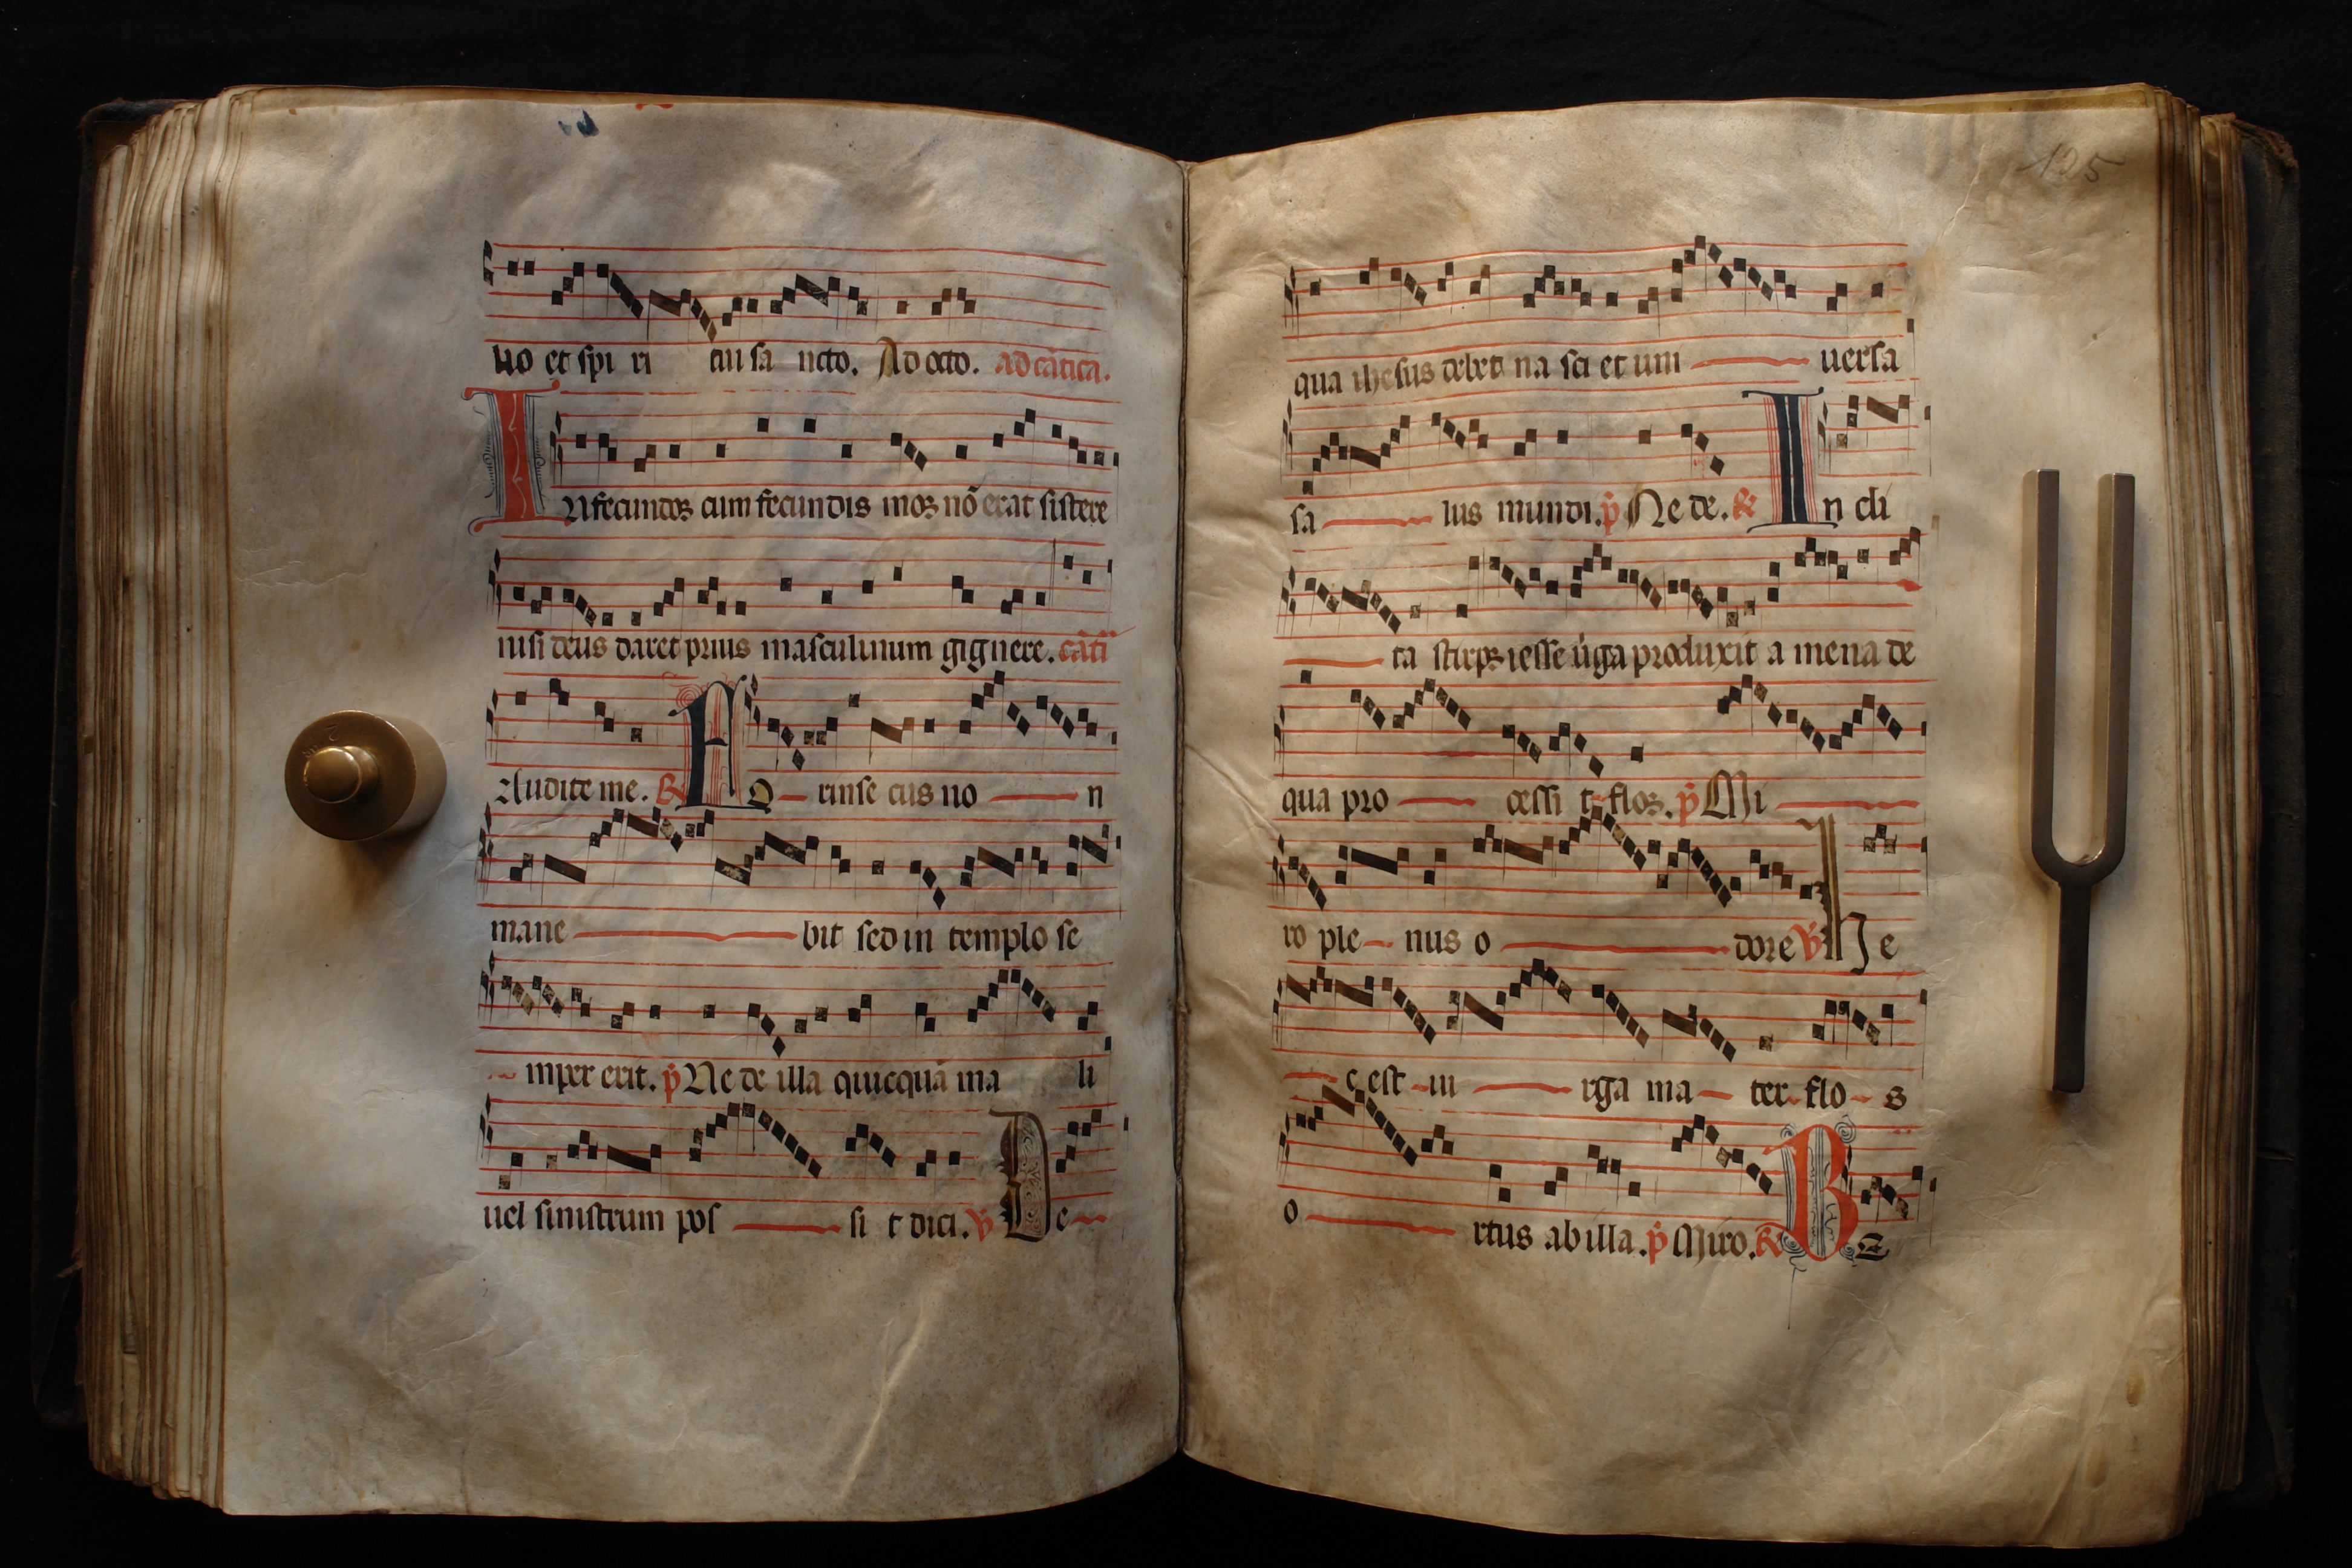 uo et spi ri tui sa ncto. Ad octo. ad cãtica.
Infecundos cum fecundis mos nõ erat sistere
nisi deus daret prius masculinum gignere. cãti
Audite me. R Ex - trinse cus no n
mane bit sed in templo se
mper erit. p̃ Ne de illa quicquã ma li
uel sinistrum pos si t dici. V De
125
qua ihesus debet na sci et uni uersa
sa lus mundi. p̃ Ne de. R In cli
ta stirps iesse uĩga produxit a mena de
qua pro cessi t flos. p̃ Mi
ro ple nus o dore V H e
c est ui rga ma ter flo s
o rtus ab illa. p̃ Miro. R B E